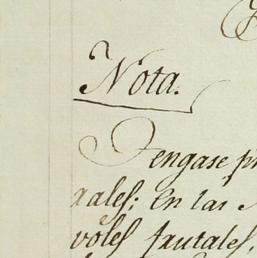 Nota.
Tengase pr
rales; En las
voles frutales,